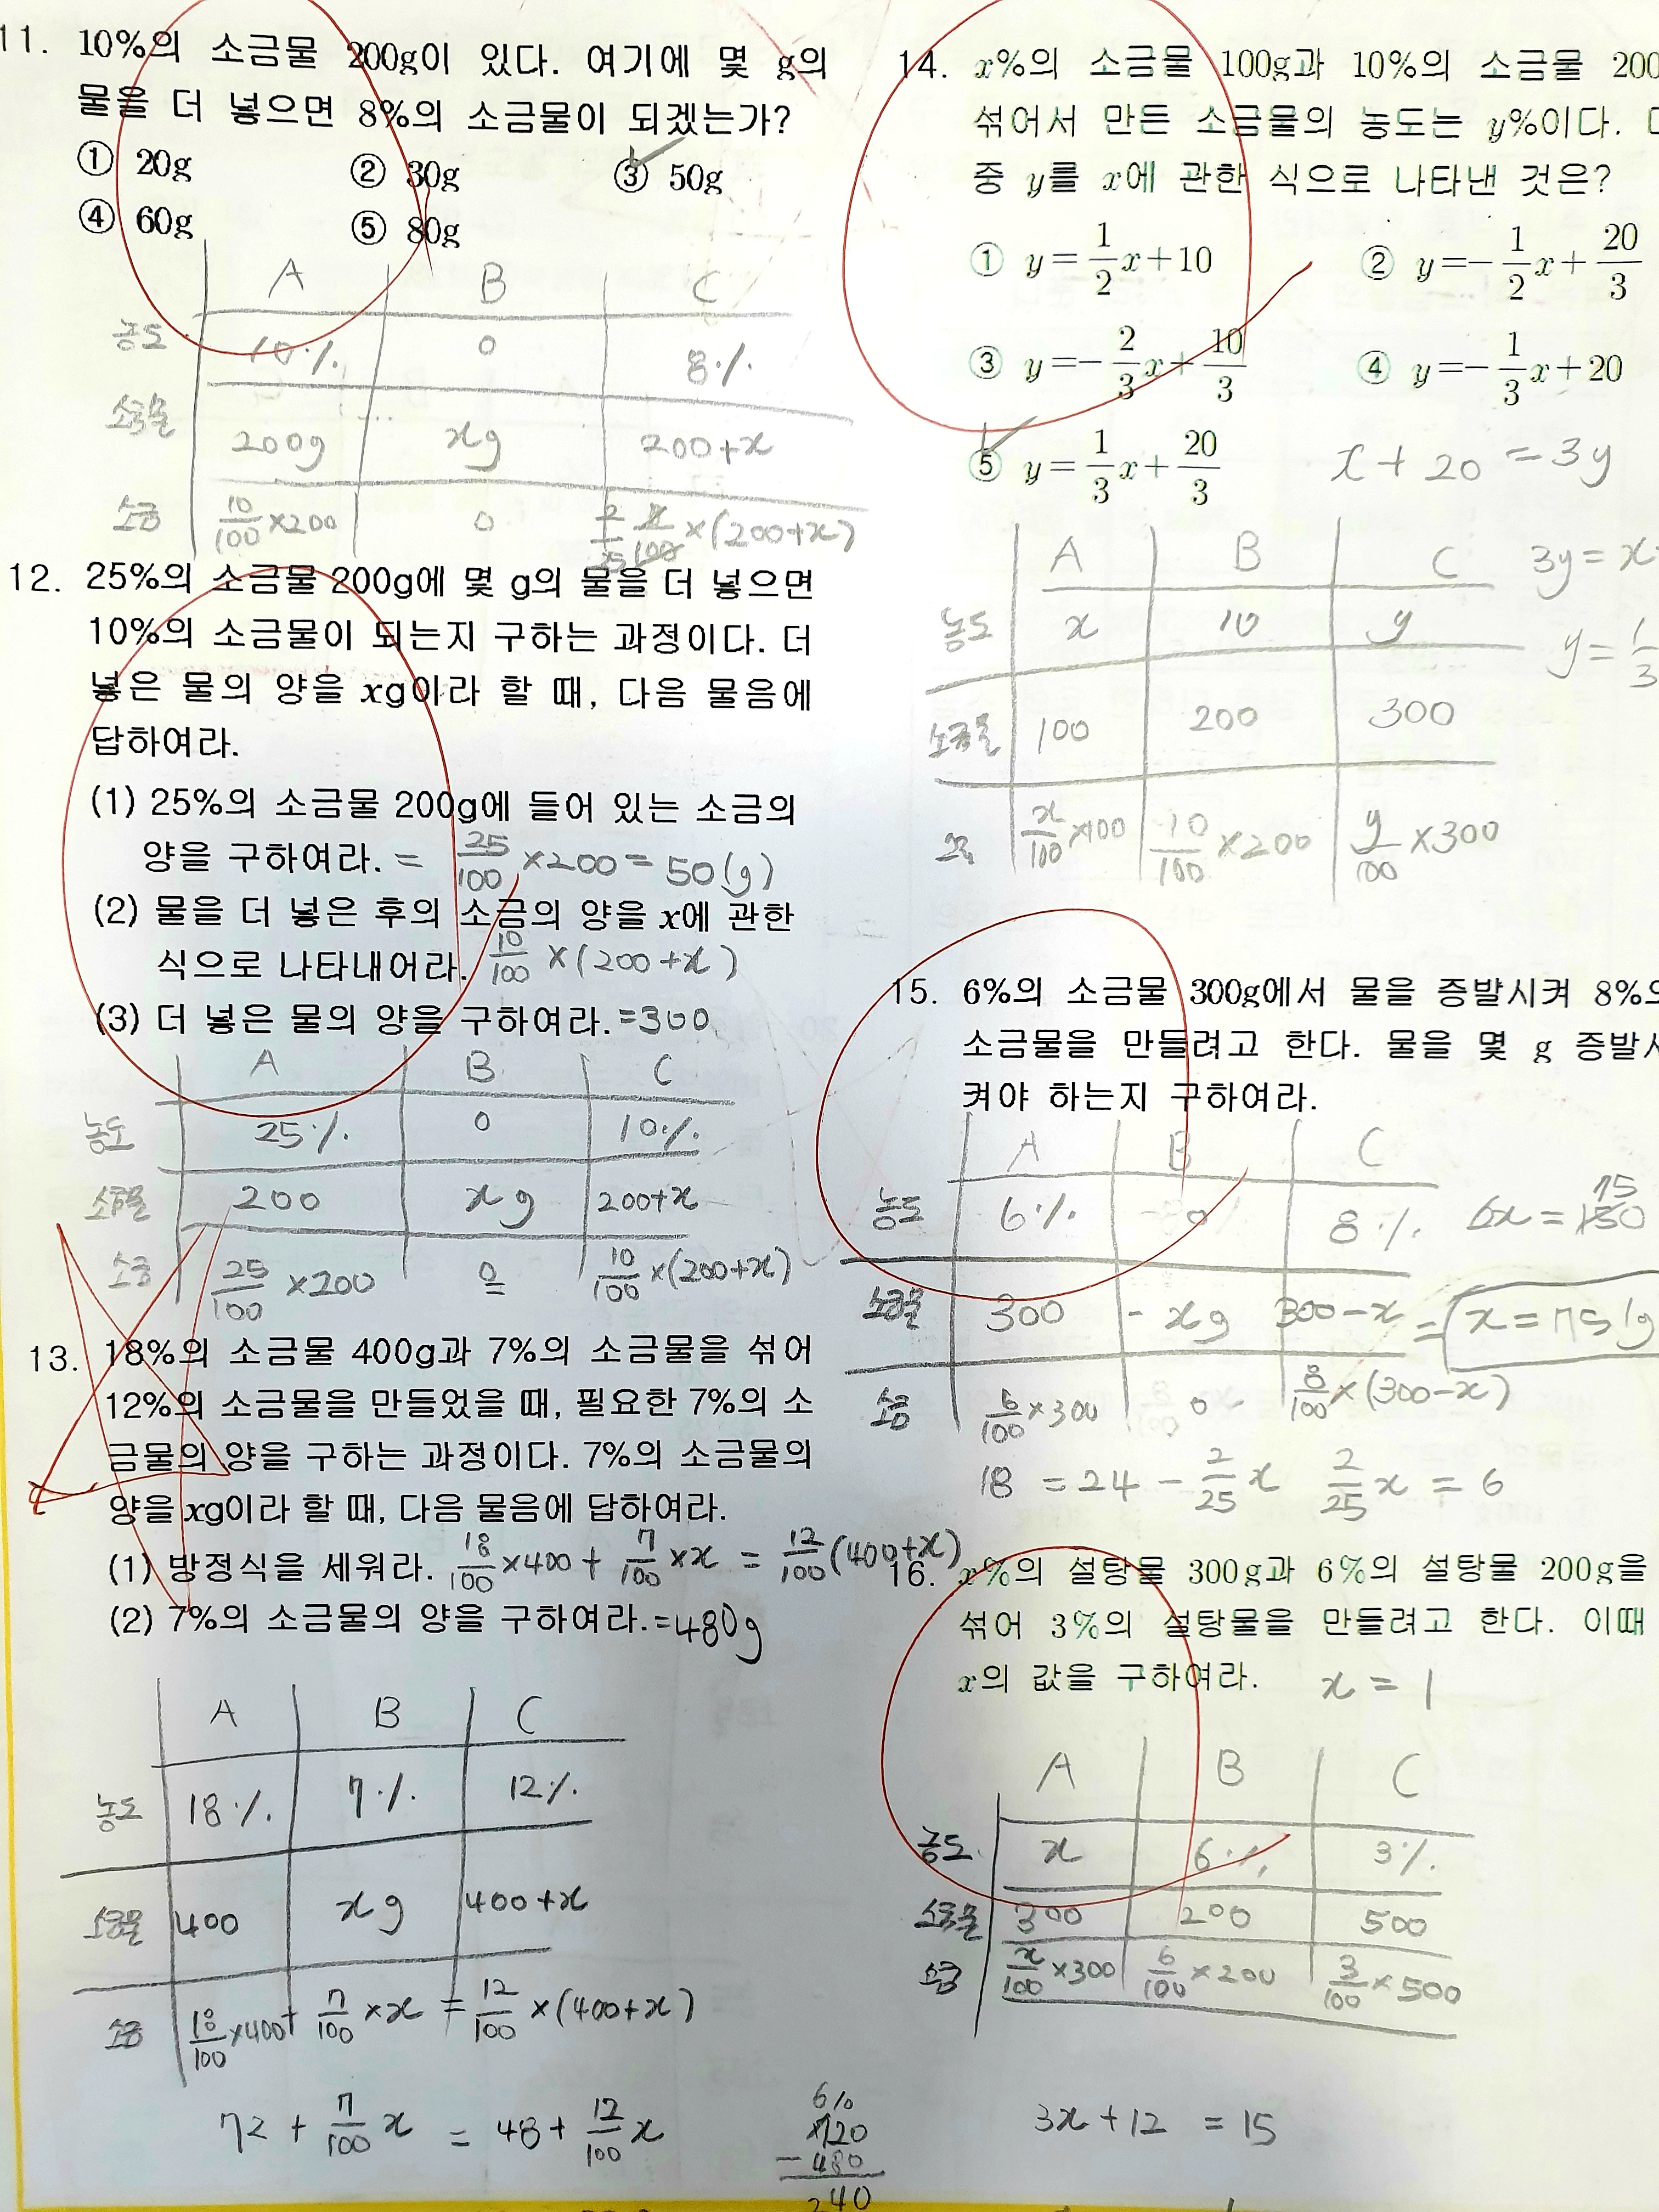 11. 10%의 소금물 200g이 있다. 여기에 몇 g의
물을 더 넣으면 8%의 소금물이 되겠는가?
① 20g ② 30g ③ 50g
④ 60g ⑤ 80g
A B C
농도 10% 0 8%
소금물 200g xg 200+x
소금 10/100 ×200 0 2/25 8/100 ×(200+x)
12. 25%의 소금물 200g에 몇 g의 물을 더 넣으면
10%의 소금물이 되는지 구하는 과정이다. 더
넣은 물의 양을 xg이라 할 때, 다음 물음에
답하여라.
(1) 25%의 소금물 200g에 들어 있는 소금의
양을 구하여라. = 25/100 ×200 = 50(g)
(2) 물을 더 넣은 후의 소금의 양을 x에 관한
식으로 나타내어라. 10/100 ×(200+x)
(3) 더 넣은 물의 양을 구하여라. =300
A B C
농도 25% 0 10%
소금물 200 xg 200+x
소금 25/100 ×200 0 10/100 ×(200+x)
13. 18%의 소금물 400g과 7%의 소금물을 섞어
12%의 소금물을 만들었을 때, 필요한 7%의 소
금물의 양을 구하는 과정이다. 7%의 소금물의
양을 xg이라 할 때, 다음 물음에 답하여라.
(1) 방정식을 세워라. 18/100 ×400 + 7/100 ×x = 12/100 (400+x)
(2) 7%의 소금물의 양을 구하여라. =480g
A B C
농도 18% 7% 12%
소금물 400 xg 400+x
소금 18/100 ×400 + 7/100 ×x = 12/100 ×(400+x)
72 + 7/100 x = 48 + 12/100 x
720
-480
240
14. x%의 소금물 100g과 10%의 소금물 200
섞어서 만든 소금물의 농도는 y%이다.
중 y를 x에 관한 식으로 나타낸 것은?
① y=1/2x+10 ② y=-1/2x+20/3
③ y=-2/3x+10/3 ④ y=-1/3x+20
⑤ y=1/3x+20/3
x+20 =3y
3y=x
y=1/3
A B C
농도 x 10 y
소금물 100 200 300
x/100 ×100 10/100 ×200 y/100 ×300
15. 6%의 소금물 300g에서 물을 증발시켜 8%의
소금물을 만들려고 한다. 물을 몇 g 증발시
켜야 하는지 구하여라.
A B C
농도 6% 0 8%
소금물 300 - xg 300-x
= x=75(g
소금 6/100 ×300 0 8/100 ×(300-x)
18 = 24 - 2/25 x 2/25 x = 6
16. x%의 설탕물 300g과 6%의 설탕물 200g을
섞어 3%의 설탕물을 만들려고 한다. 이때
x의 값을 구하여라. x = 1
A B C
농도 x 6% 3%
소금물 300 200 500
소금 x/100 ×300 6/100 ×200 3/100 ×500
3x+12 = 15